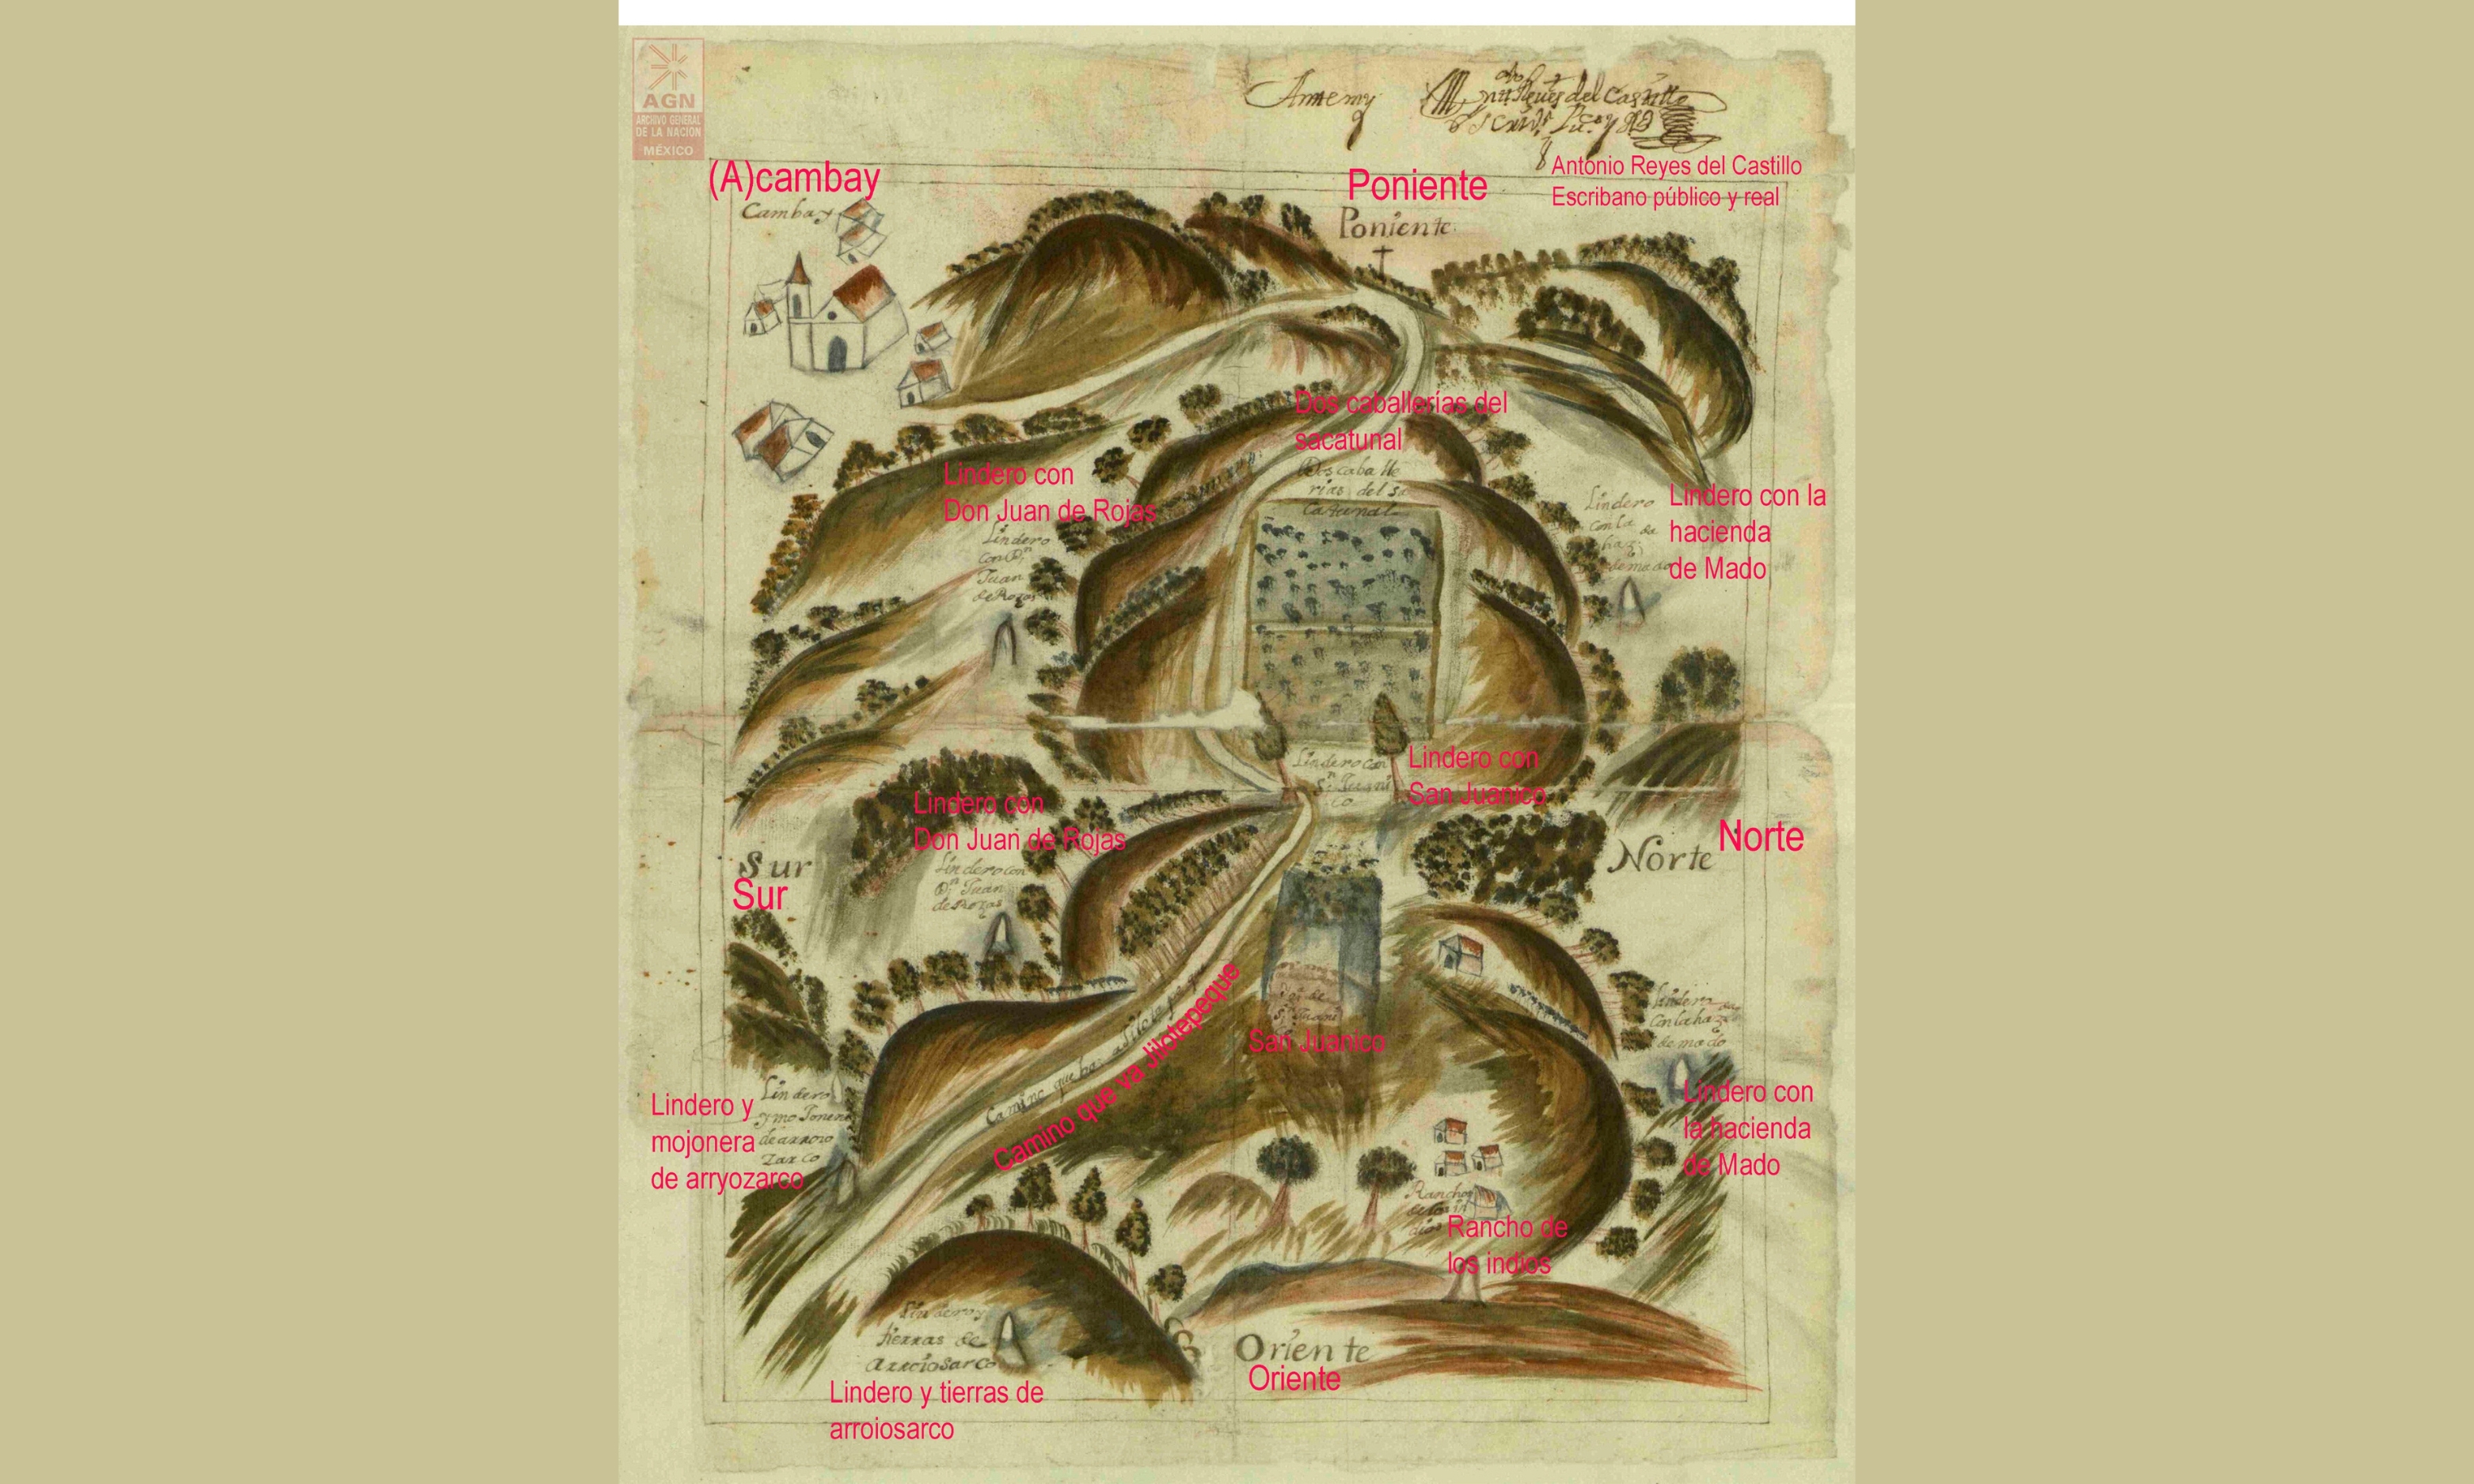 AGN
ARCHIVO GENERAL
DE LA NACION
MÉXICO
Ante my
del Castillo
(A)cambay
Cambay
Poniente
Poniente
Antonio Reyes del Castillo
Escribano público y real
Dos caballerías del
sacatunal
Dos caballe
rias del Sa
Catunal
Lindero con
Don Juan de Rojas
Lindero
Con Dn
Juan
de Rozas
Lindero
Con la
haz.da
de mado
Lindero con la
hacienda
de Mado
Lindero con
Sn Juani
co
Lindero con
San Juanico
Lindero con
Don Juan de Rojas
Lindero con
Dn Juan
de Rozas
Sur
Sur
Norte
Norte
Sn Juani
San Juanico
Camino que ba a
Camino que va Jilotepeque
Lindero
Con la haz.da
de mado
Lindero con
la hacienda
de Mado
Lindero
y mo Jonera
de arroio
Zarco
Lindero y
mojonera
de arryozarco
Rancho
de los in
dios
Rancho de
los indios
Lindero y
tierras de
arroiosarco
Lindero y tierras de
arroiosarco
Oriente
Oriente